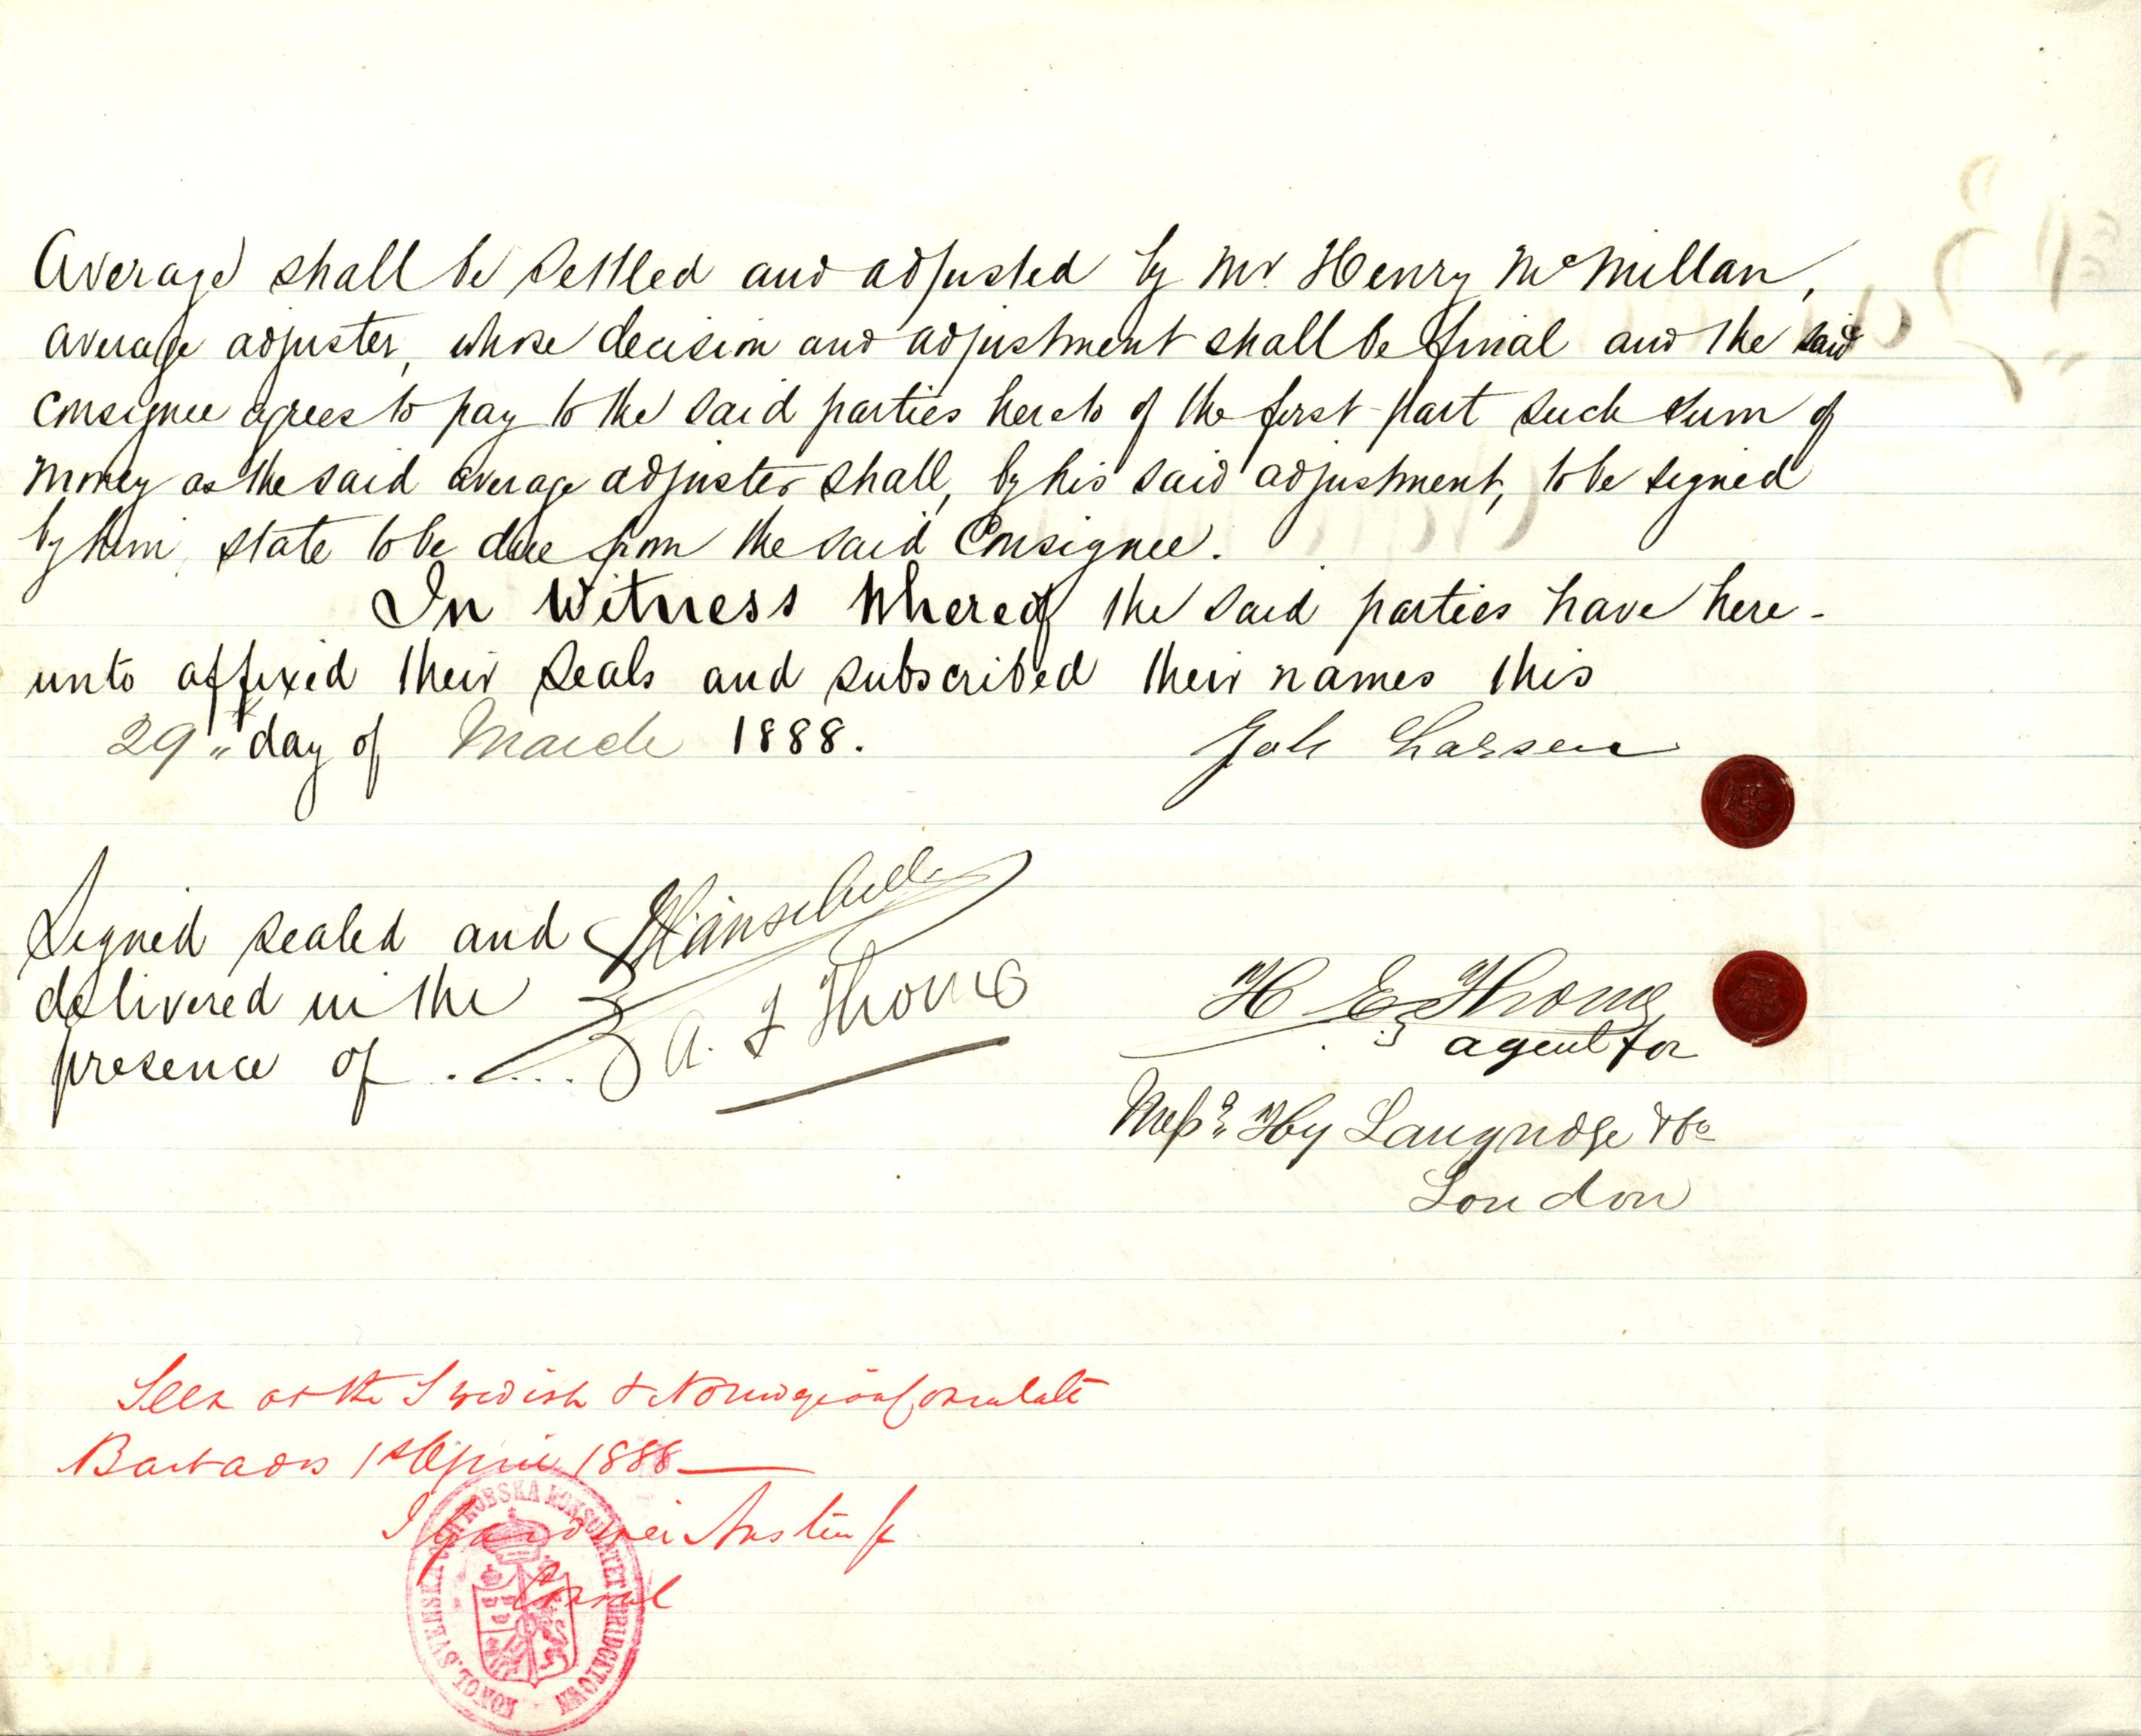 Average shall be settled and adjusted by Mr. Henry McMillan,
average adjuster, whose decision and adjustment shall be final and the said
consignee agrees to pay to the said parties hereto of the first part such sum of
money as the said average adjuster shall, by his said adjustment, to be signed
by him, state to be due from the said Consignee.
In Witness Whereof the said parties have here-
unto affixed their seals and subscribed their names this
29" day of March 1888.
Joh Larsen
Signed sealed and
delivered in the
presence of ....
A. F Thorne
H E Thorne
agent for
Messrs Hy Langridge & Co
London
Seen at the Swedish & Norwegian Consulate
Barbados 1st April 1888
Gardiner Austin Jr
Consul
KONGL. SVENSKA OCH NORSKA KONSULATET BRIDGETOWN